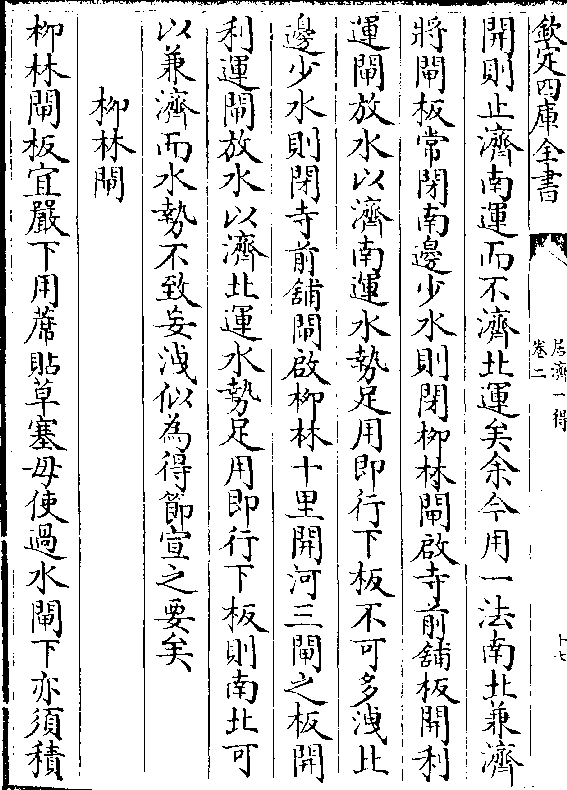 欽定四庫全書
居濟一得
卷二
十七
開則止濟南運而不濟北運矣余今用一法南北兼濟
將閘板常閉南邊少水則閉柳林閘啟寺前舖板開利
運閘放水以濟南運水勢足用即行下板不可多洩北
邊少水則閉寺前舖閘啟柳林十里開河三閘之板開
利運閘放水以濟北運水勢足用即行下板則南北可
以兼濟而水勢不致妄洩似為得節宣之要矣
柳林閘
柳林閘板宜嚴下用蓆貼草塞毋使過水閘下亦須積